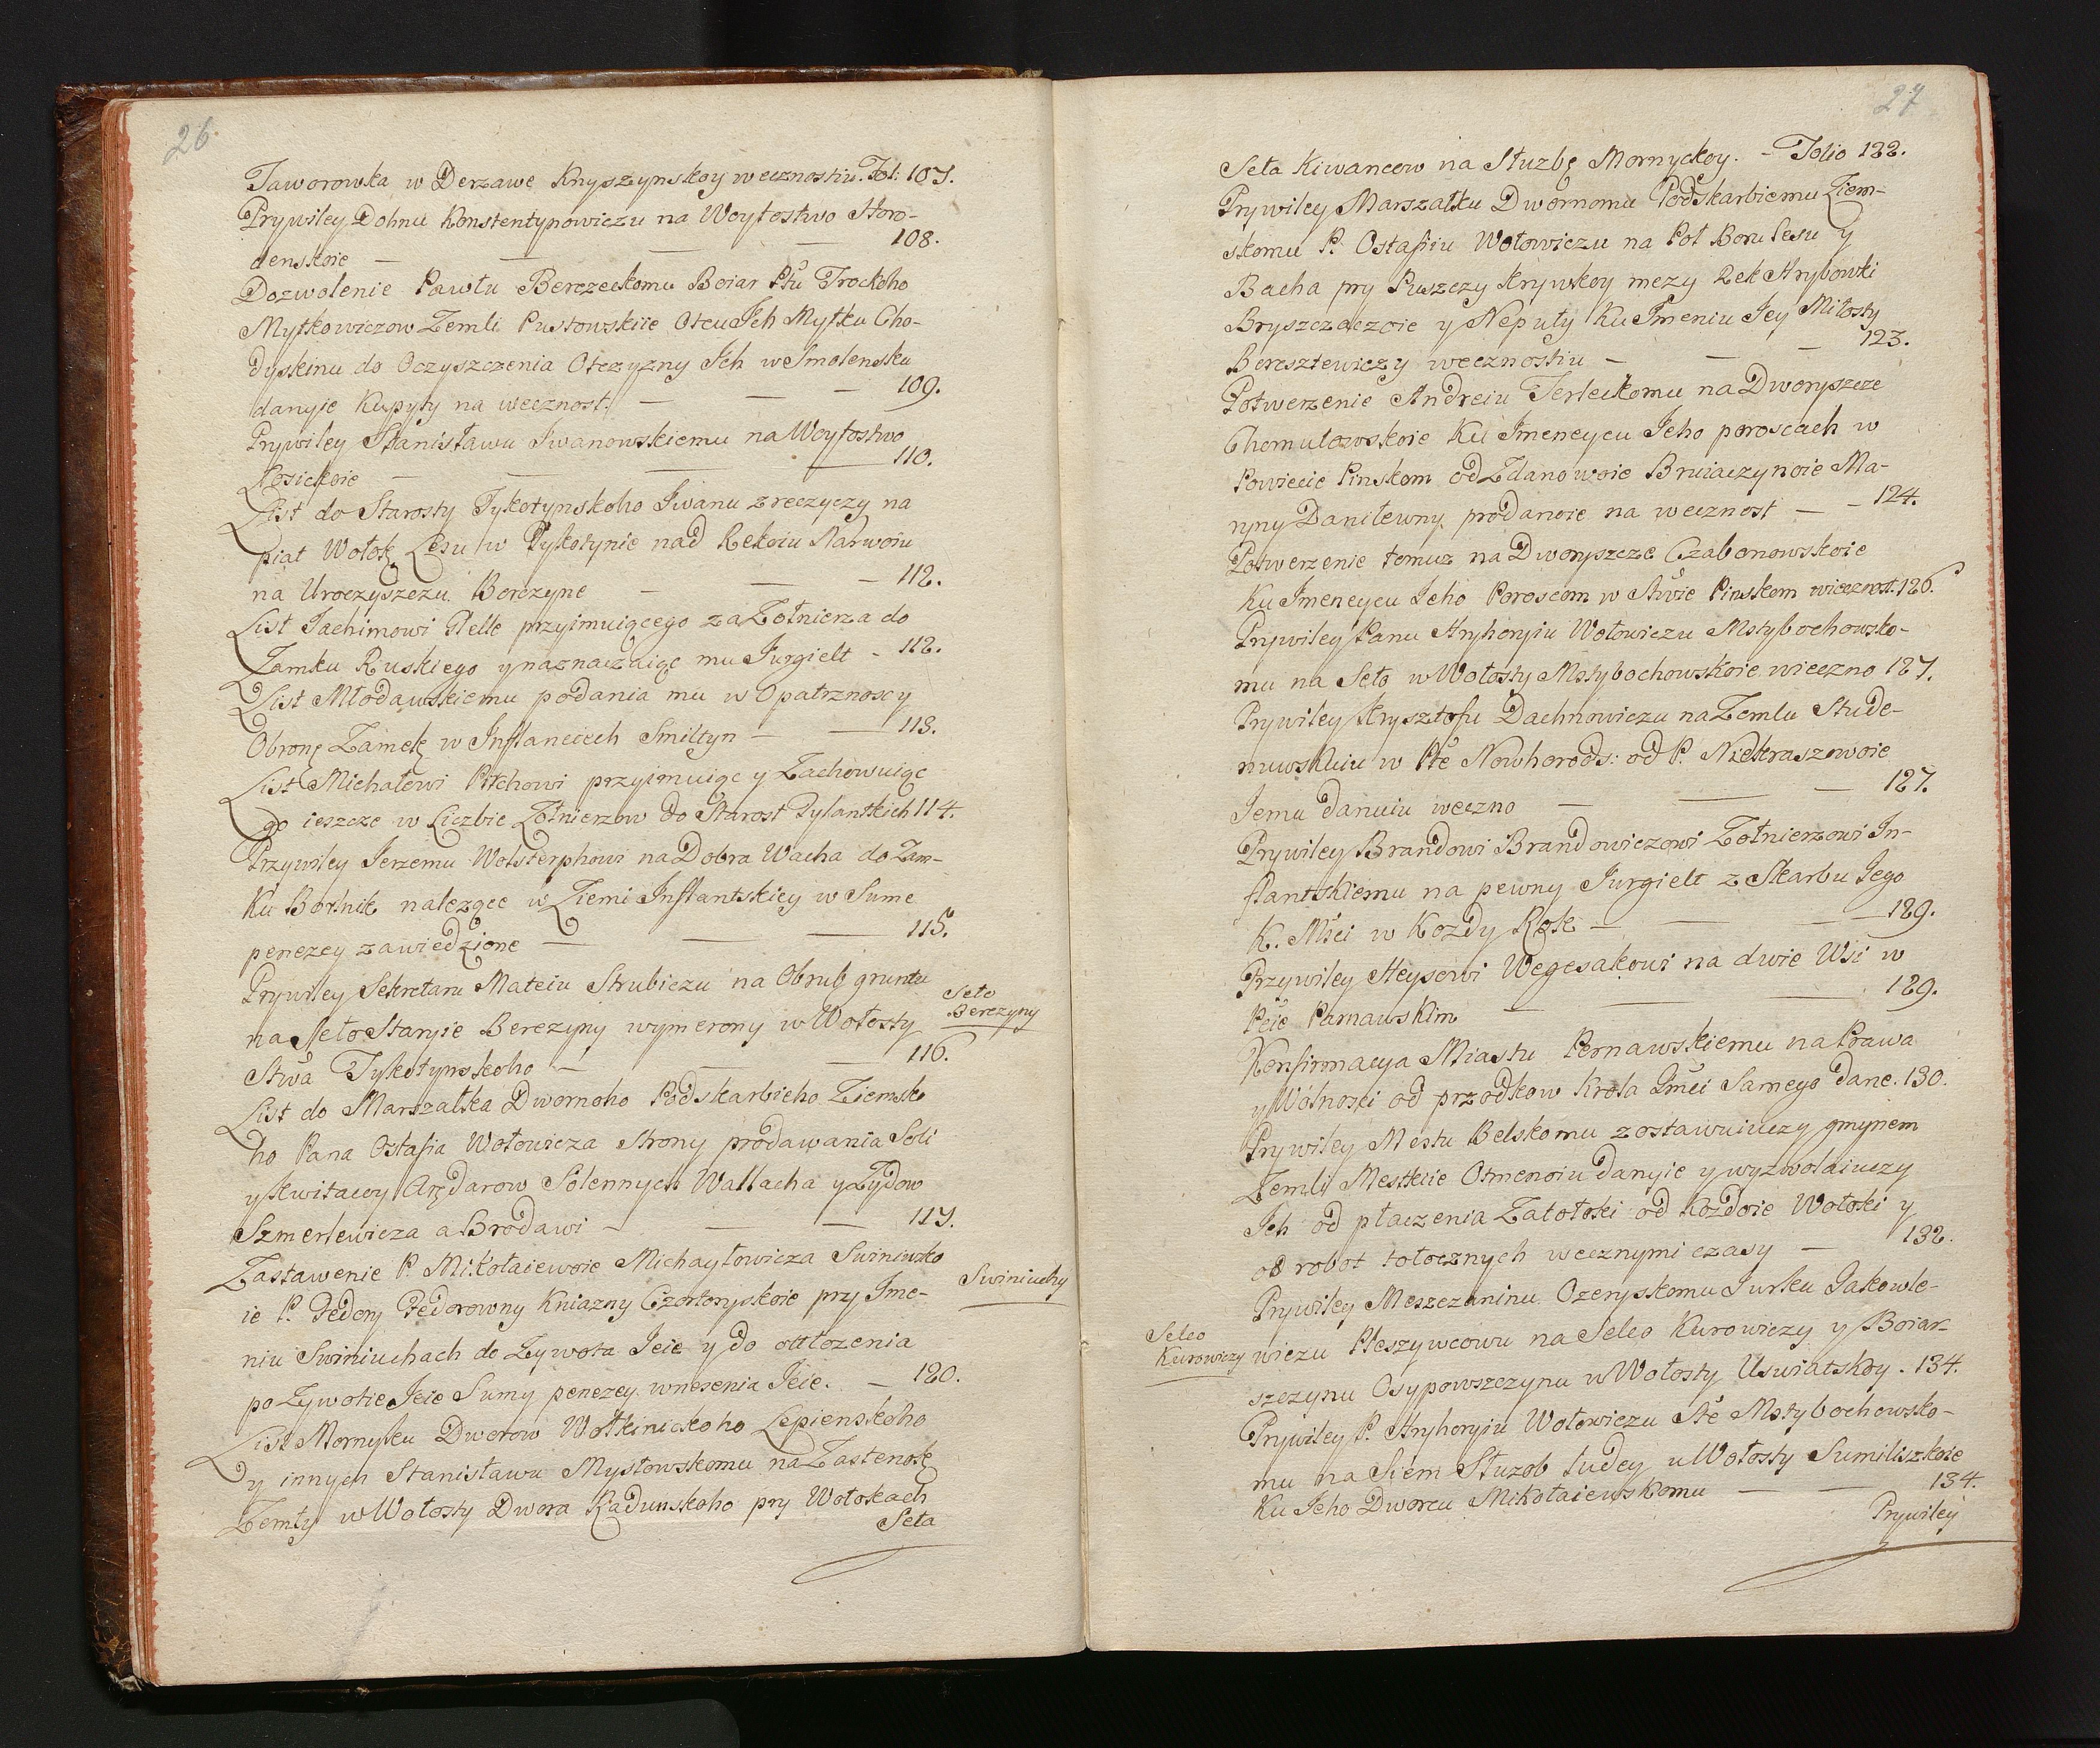 26.
Jaworowka w Derzawe Knyszynskoy wecznostiu. Fol: 107.
Prywiley Dohnu Konstentynowiczu na Woytostwo Horo-
denskoie — 108.
Dozwolenie Pawłu Berezeckomu Boiar Płu Trockoho
Mytkowiczow Zemli Pustowskiie Otcu Jch Mytku Cho-
dyskinu do Oczyszczenia Otczyzny Jch w Smolensku
danyie Kupyty na wecznost. — 109.
Prywiley Stanisławu Jwanowskiemu na Woytostwo
Łosickoie — 110.
List do Starosty Tykotynskoho Jwanu zreczyczy na
piat Wołok Lesu w Tykotynie nad Rekoiu Narwoiu
na Uroczyszczu Borczyne — 112.
List Jachimowi Plelle przyimuiącego za Zołnierza do
Zamku Ruskiego y naznaczaiąc mu Jurgielt - 112.
List Młodawskiemu podania mu w Opatrznoscy
Obronę Zamek w Jnflanciech Smiltyn — 113.
List Michałowi Pkchowi przyimuiąc y Zachowuiąc
go ieszcze w Liczbie Zołnierzow do Starost Dylantkich 114.
Przywiley Jerzemu Wolsterphowi na Dobra Wacha do Zam-
ku Borhnik nalezące w Ziemi Jnflantskiey w Sume
penezey zawiedzione — 115.
Prywiley Sekretaru Mateiu Strubiczu na Obrub gruntu
na Seło Staryie Berezyny wymerony w Wołosty
Seło
Berezyny
Stwa Tykotynskoho — 116.
List do Marszałka Dwornoho Podskarbieho Ziemsko
ho Pana Ostafia Wołowicza strony prodawania Soli
y kwitacey Arędarow Solennych Wallacha y Zydow
Szmerlewicza a Brodawi — 117.
Zastawenie P. Mikołaiewoie Michayłowicza Swiniusko
ie P. Fedory Fedorowny Kniazny Czortoryskoie przy Jme-
Swiniuchy
niu Swiniuchach do Zywota Jeie y do odłozenia
po Zywotie Jeie Sumy penezey wnesenia Jeie. — 120.
List Mornyku Dworow Wołkinickoho Lepienskoho
y innych Stanisławu Mysłowskomu na Zastenok
Zemły w Wołosty Dwora Radunskoho pry Wołokach
Seła
27
Seła Kiwancow na Słuzbę Mornyckoy. - Folio 122.
Prywiley Marszałku Dwornomu Podskarbiemu Ziem-
skomu P. Ostafiiu Wołowiczu na Poł Boru Lesu y
Bacha pry Puszczy Krywskoy mezy Rek Hrybowki
Bryszczaczoie y Neputy Ku Jmeniu Jey Miłosty
Beresztewiczy wecznostiu — 123.
Potwerzenie Andreiu Terleckomu na Dworyszcze
Chomutowskoie Ku Jmeneycu Jeho poroscach w
Powiecie Pinskom od Zdanowoie Bruiaczynoie Ma-
ryny Daniłewny prodanoie na wecznost — 124.
Potwerzenie tomuz na Dworyszcze Czabonowskoie
Ku Jmeneycu Jeho Poroscom w Stwie Pinskom wiecznost. 126.
Prywiley Panu Hryhoryiu Wołowiczu Mstybochowsko-
mu na Seło w Wołosty Mstybochowskoie wieczno 127.
Prywiley Krysztofu Dachnowiczu na Zemlu Stude-
nuwskuiu w Płe Nowhorods: od P. Niekraszowoie
Jemu danuiu weczno — 127.
Prywiley Brandowi Brandowiczowi Zołnierzowi Jn-
flantskiemu na pewny Jurgielt z Skarbu Jego
K. Msci w Kozdy Rok — 129.
Przywiley Heysowi Wegesakowi na dwie Wsi w
Pcie Parnawskim — 129.
Konfirmacya Miastu Pernawskiemu na Prawa
y Wolnozci od przodkow Krola Jmci Samego dane. 130.
Prywiley Mestu Belskomu zostawuiuczy gmynem
Zemli Mestkie Otmenoiu danyie y wyzwolaiuczy
Jch od płaczenia Zatołoki od Kozdoie Wołoki y
od robot tołocznych wecznymi czasy — 132.
Prywiley Meszczaninu Ozeryskomu Jurku Jakowle-
Seleo
Kurowiczy
wiczu Pleszywcowu na Seleo Kurowiczy y Boiar-
szczynu Osypowszczynu w Wołosty Uswiatskoy. 134.
Prywiley P. Hryhoryiu Wołowiczu Stē Mstybochowsko-
mu na Siem Słuzob ludey u Wołosty Sumiliszkoie
Ku Jeho Dworcu Mikołaiewskomu — 134.
Prywiley